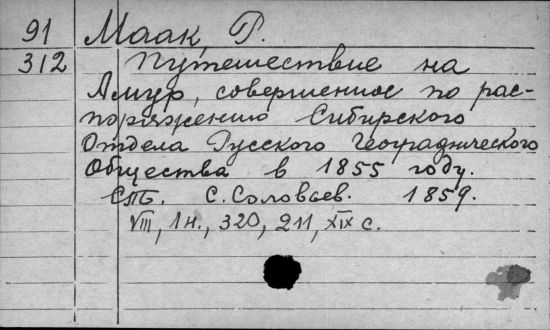 91 Маак, Р.
312 Путешествие на
Амур, совершенное по рас-
поряжению Сибирского
Отдела Русского Географического
Общества в 1855 году.
С. Соловьев. 1859.
VIII, 1н., 320, 211, XIX с.